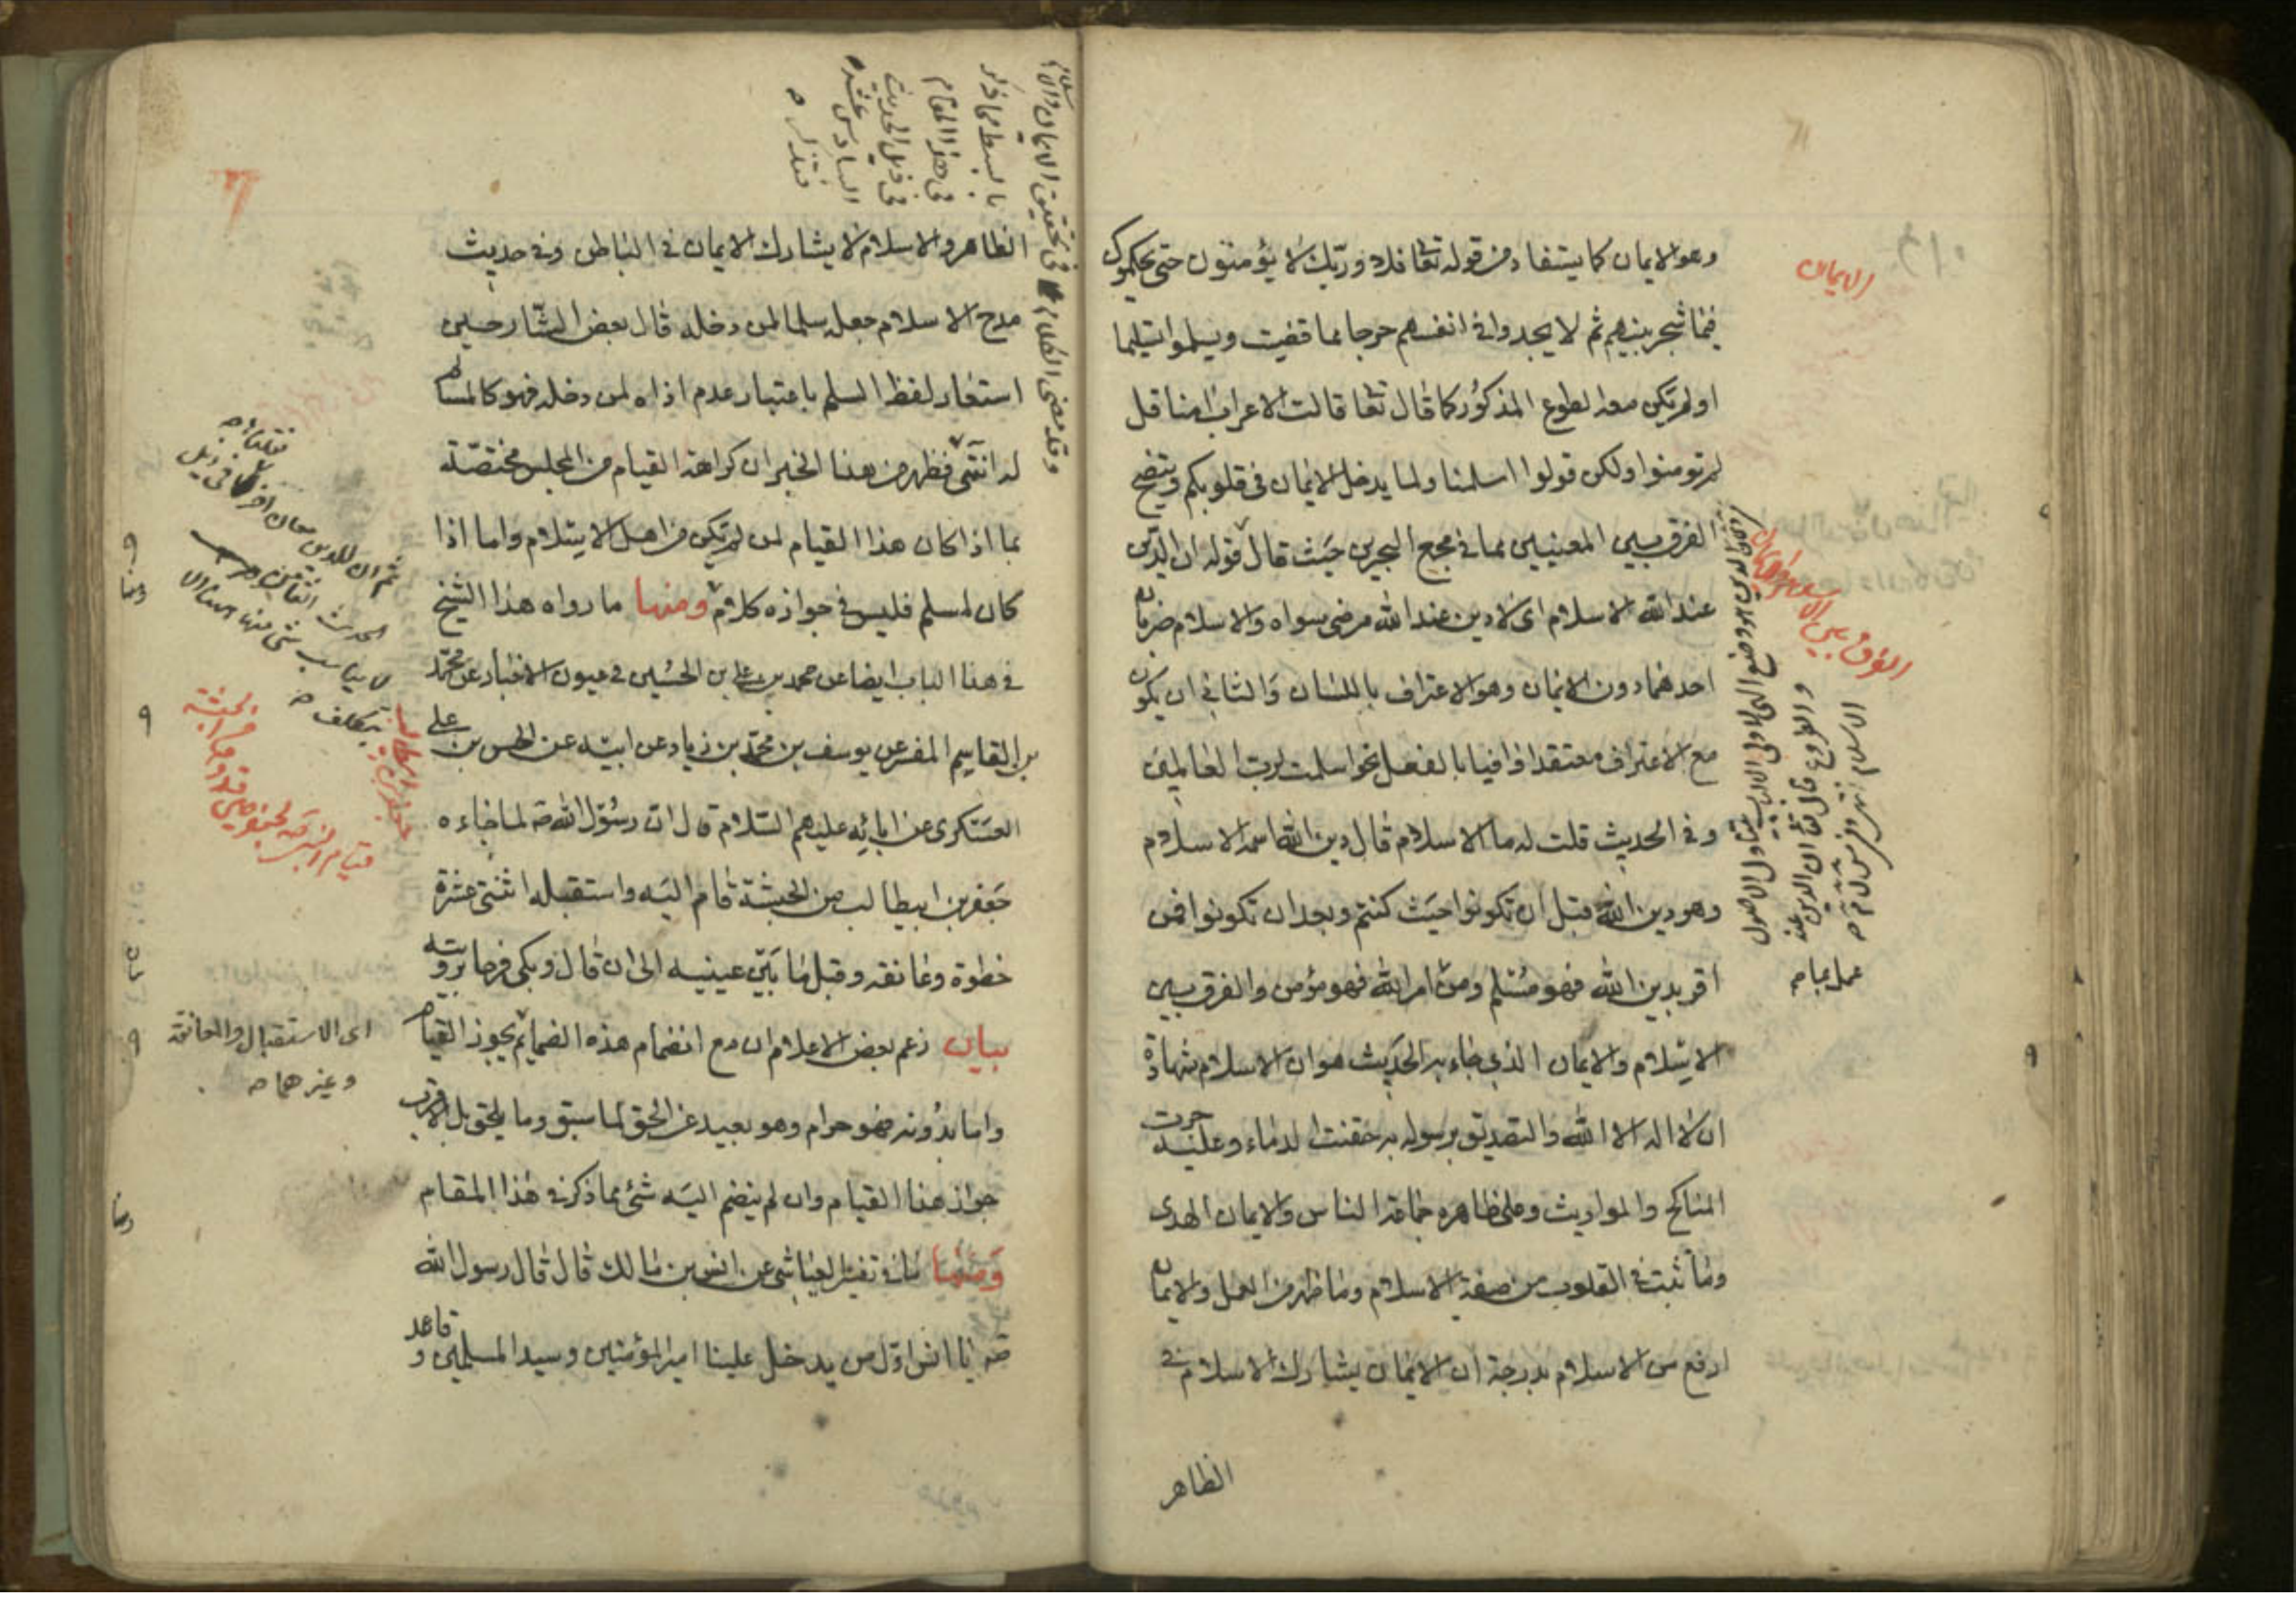 وهو الايمان كما يستفاد من قوله تعا فلا وربك لا يؤمنون حتى يحكموك
فيما شجر بينهم ثم لا يجدوا في انفسهم حرجا مما قضيت ويسلموا تسليما
او لم تكن معه الطوع المذكور كما قال تعا قالت الاعراب امنا قل
لم تومنوا ولكن قولوا اسلمنا ولما يدخل الايمان في قلوبكم ويتضح
الفرق بين المعينين مما في مجمع البحرين حيث قال قوله ان الدين
عند الله الاسلام اى لا دين عند الله مرضى سواه والاسلام ضربان
احدهما دون الايمان وهو الاعتراف باللسان والثاني ان يكون
مع الاعتراف معتقدا وافيا بالفعل نحو اسلمت لرب العالمين
وفي الحديث قلت له ما الاسلام قال دين الله اسمه الاسلام
وهو دين الله قبل ان تكونوا حيث كنتم وبعد ان تكونوا فمن
اقر بدين الله فهو مسلم ومن امر الله فهو مؤمن والفرق بين
الاسلام والايمان الذي جاء به الحديث هو ان الاسلام شهادة
ان لا اله الا الله والتصديق برسوله به حقنت الدماء وعليه جرت
المناكح والمواريث وعلى ظاهره جماعة الناس والايمان الهدى
وما ثبت في القلوب من صفة الاسلام وما ظهر من العمل والايمان
ارفع من الاسلام بدرجة ان الايمان يشارك الاسلام في
الظاهر
الايمان
الفرق بين الاسلام والايمان
والفروع قال تعا ان الدين عند
الظاهر والاسلام لا يشارك الايمان في الباطن وفي حديث
مدح الاسلام جعله سلما لمن دخله قال بعض الشارحين
استعار لفظ السلم باعتبار عدم اذاه لمن دخله فهو كالمسالم
له انتهى فظهر من هذا الخبر ان كراهة القيام من المجلس مختصة
بما اذا كان هذا القيام لمن لم يكن من اهل الاسلام واما اذا
كان لمسلم فليس في جوازه كلام ومنها ما رواه هذا الشيخ
في هذا الباب ايضا عن محمد بن علي بن الحسين في عيون الاخبار عن محمد
بن القاسم المفسر عن يوسف بن محمد بن زياد عن ابيه عن الحسن بن علي
العسكرى عن ابائه عليهم السلام قال ان رسول الله صه لما جاءه
جعفر بن ابيطالب من الحبشة قام اليه واستقبله اثنتى عشرة
خطوة وعانقه وقبل ما بين عينيه الى ان قال وبكى فرحا برؤيته
بيان زعم بعض الاعلام ان مع انضمام هذه الضمائم يجوز القيام
واما بدونه فهو حرام وهو بعيد عن الحق لما سبق وما يلحق بل الاقرب
جواز هذا القيام وان لم ينضم اليه شئ مما ذكر في هذا المقام
ومنها ما في تفسير العياشي عن انس بن مالك قال قال رسول الله
صه يا انس اول من يدخل علينا امير المؤمنين وسيد المسلمين وقائد
وقد مضى الكلام في تحقيق الايمان والاسلام
بالبسط مما ذكر
في هذا المقام
في ذيل الحديث
السادس عشر
فتذكر
ثم ان للدين معان اخر
اى الاستقبال والمعانقة
وغيرهما